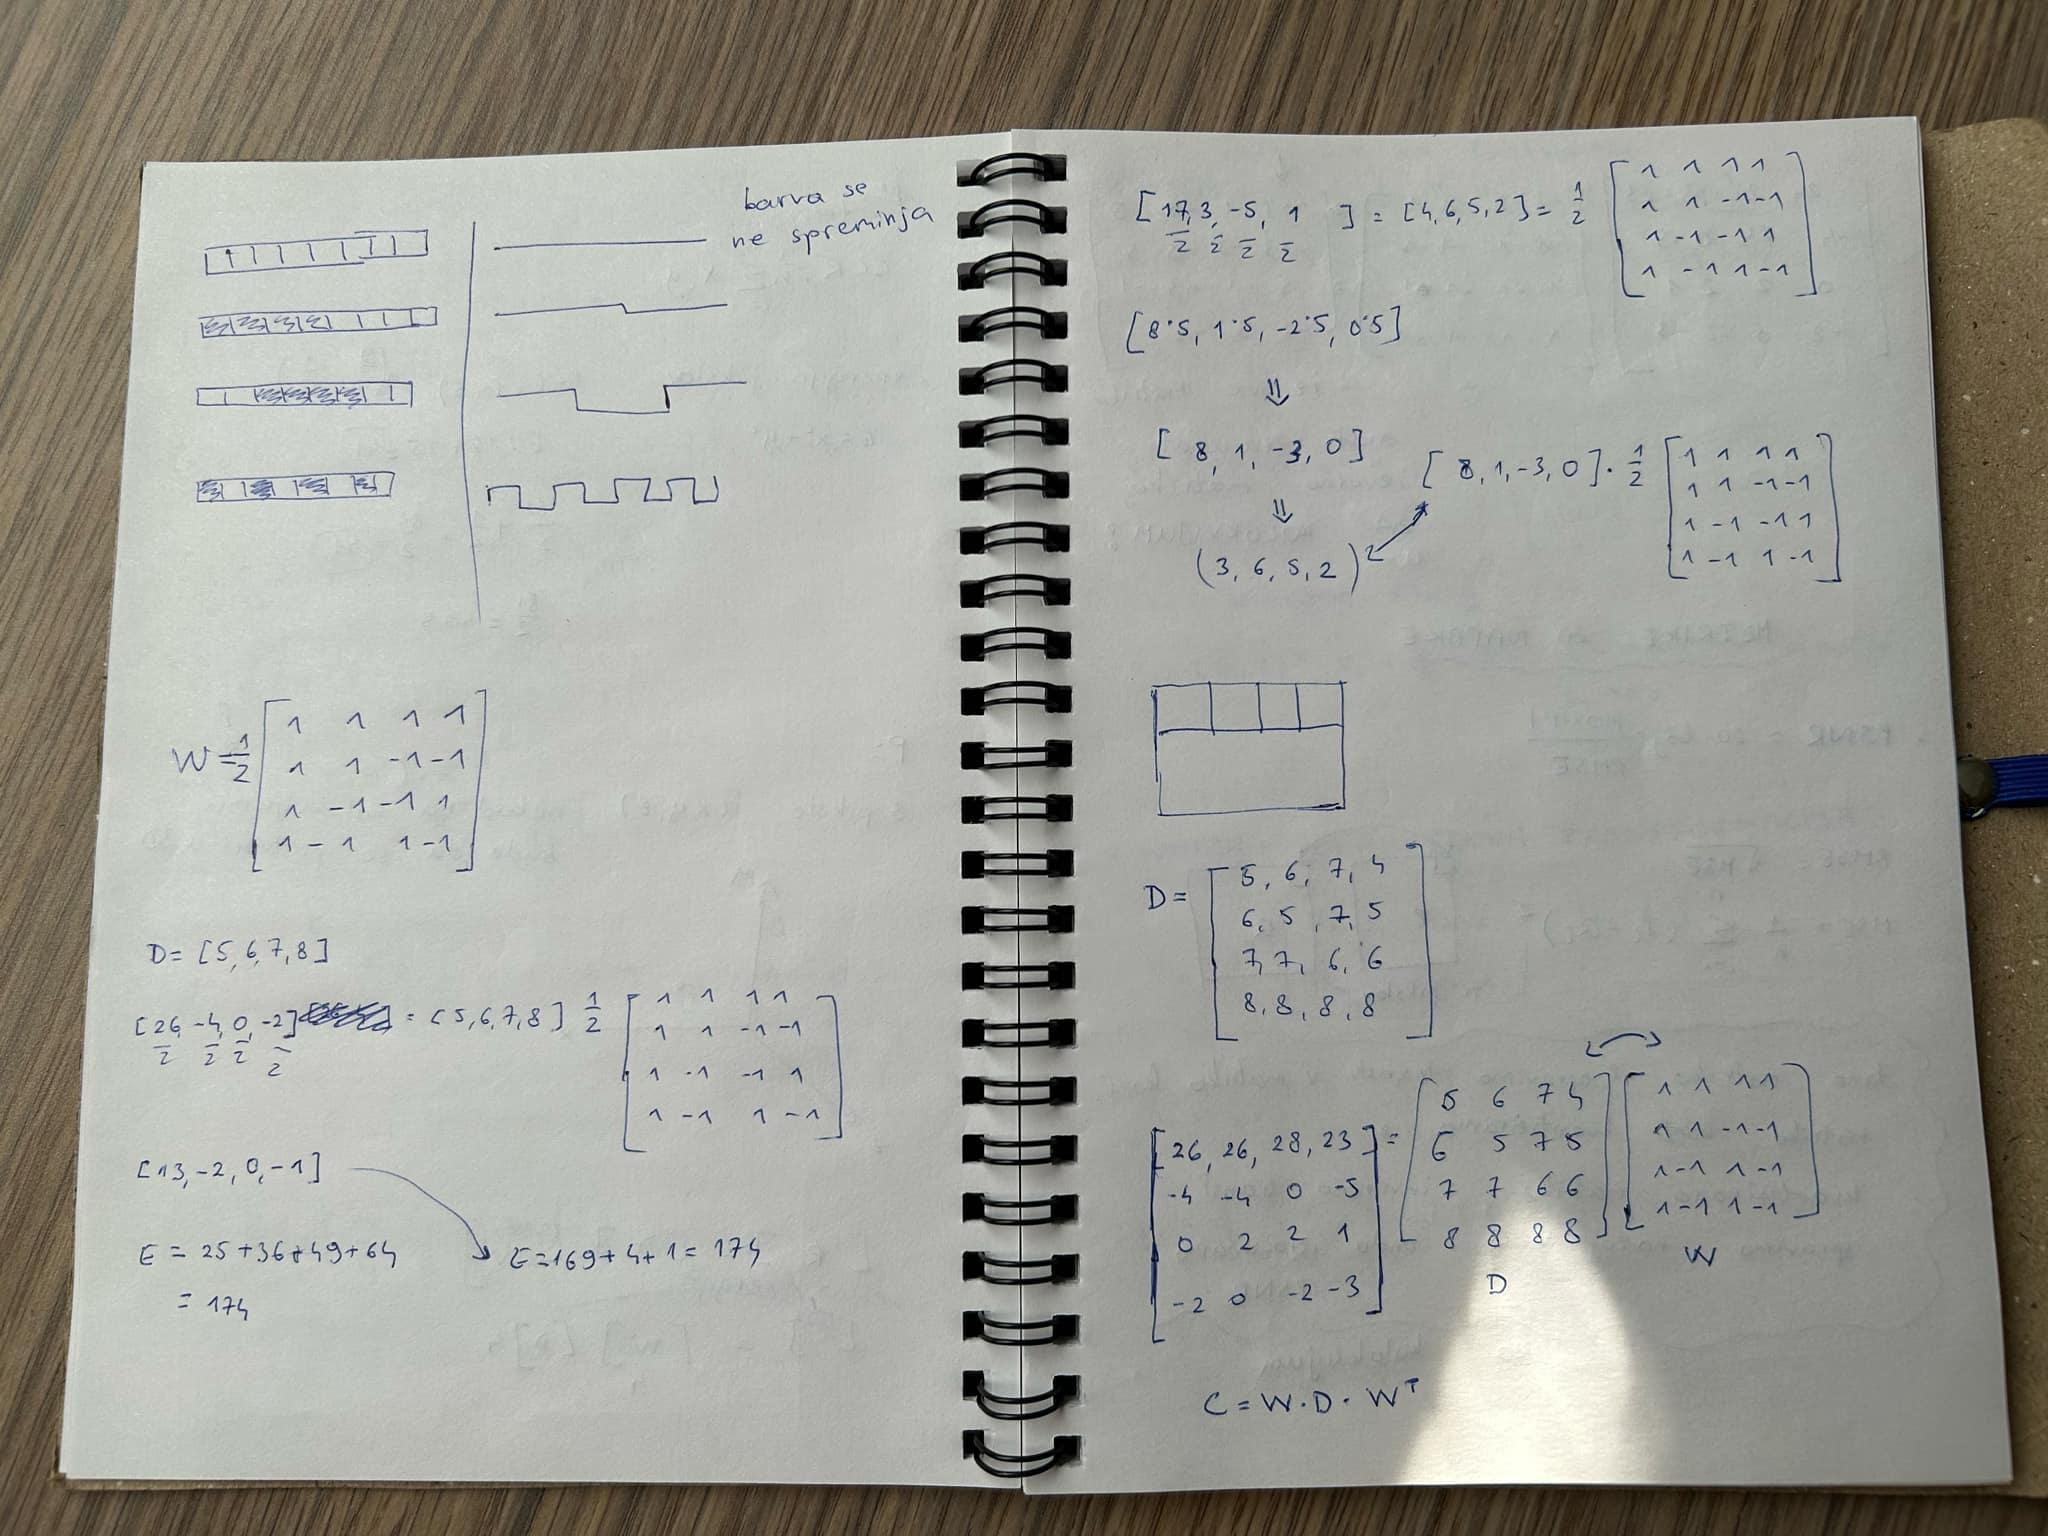 barva se
ne spreminja
W = 1/2 [ 1 1 1 1
1 1 -1 -1
1 -1 -1 1
1 -1 1 -1 ]
D = [5, 6, 7, 8]
[26/2, -4/2, 0/2, -2/2] = [5, 6, 7, 8] 1/2 [ 1 1 1 1
1 1 -1 -1
1 -1 -1 1
1 -1 1 -1 ]
[13, -2, 0, -1]
E = 25 + 36 + 49 + 64
= 174
E = 169 + 4 + 1 = 174
[17/2, 3/2, -5/2, 1/2] = [4, 6, 5, 2] = 1/2 [ 1 1 1 1
1 1 -1 -1
1 -1 -1 1
1 -1 1 -1 ]
[8.5, 1.5, -2.5, 0.5]
⇓
[8, 1, -3, 0]
⇓
(3, 6, 5, 2)
[8, 1, -3, 0] · 1/2 [ 1 1 1 1
1 1 -1 -1
1 -1 -1 1
1 -1 1 -1 ]
D = [ 5, 6, 7, 4
6, 5, 7, 5
7, 7, 6, 6
8, 8, 8, 8 ]
[ 26, 26, 28, 23 ] = [ 5 6 7 4 ] [ 1 1 1 1 ]
-4 -4 0 -5 6 5 7 5 1 1 -1 -1
0 2 2 1 7 7 6 6 1 -1 1 -1
-2 0 -2 -3 8 8 8 8 1 -1 1 -1
D W
C = W · D · Wᵀ